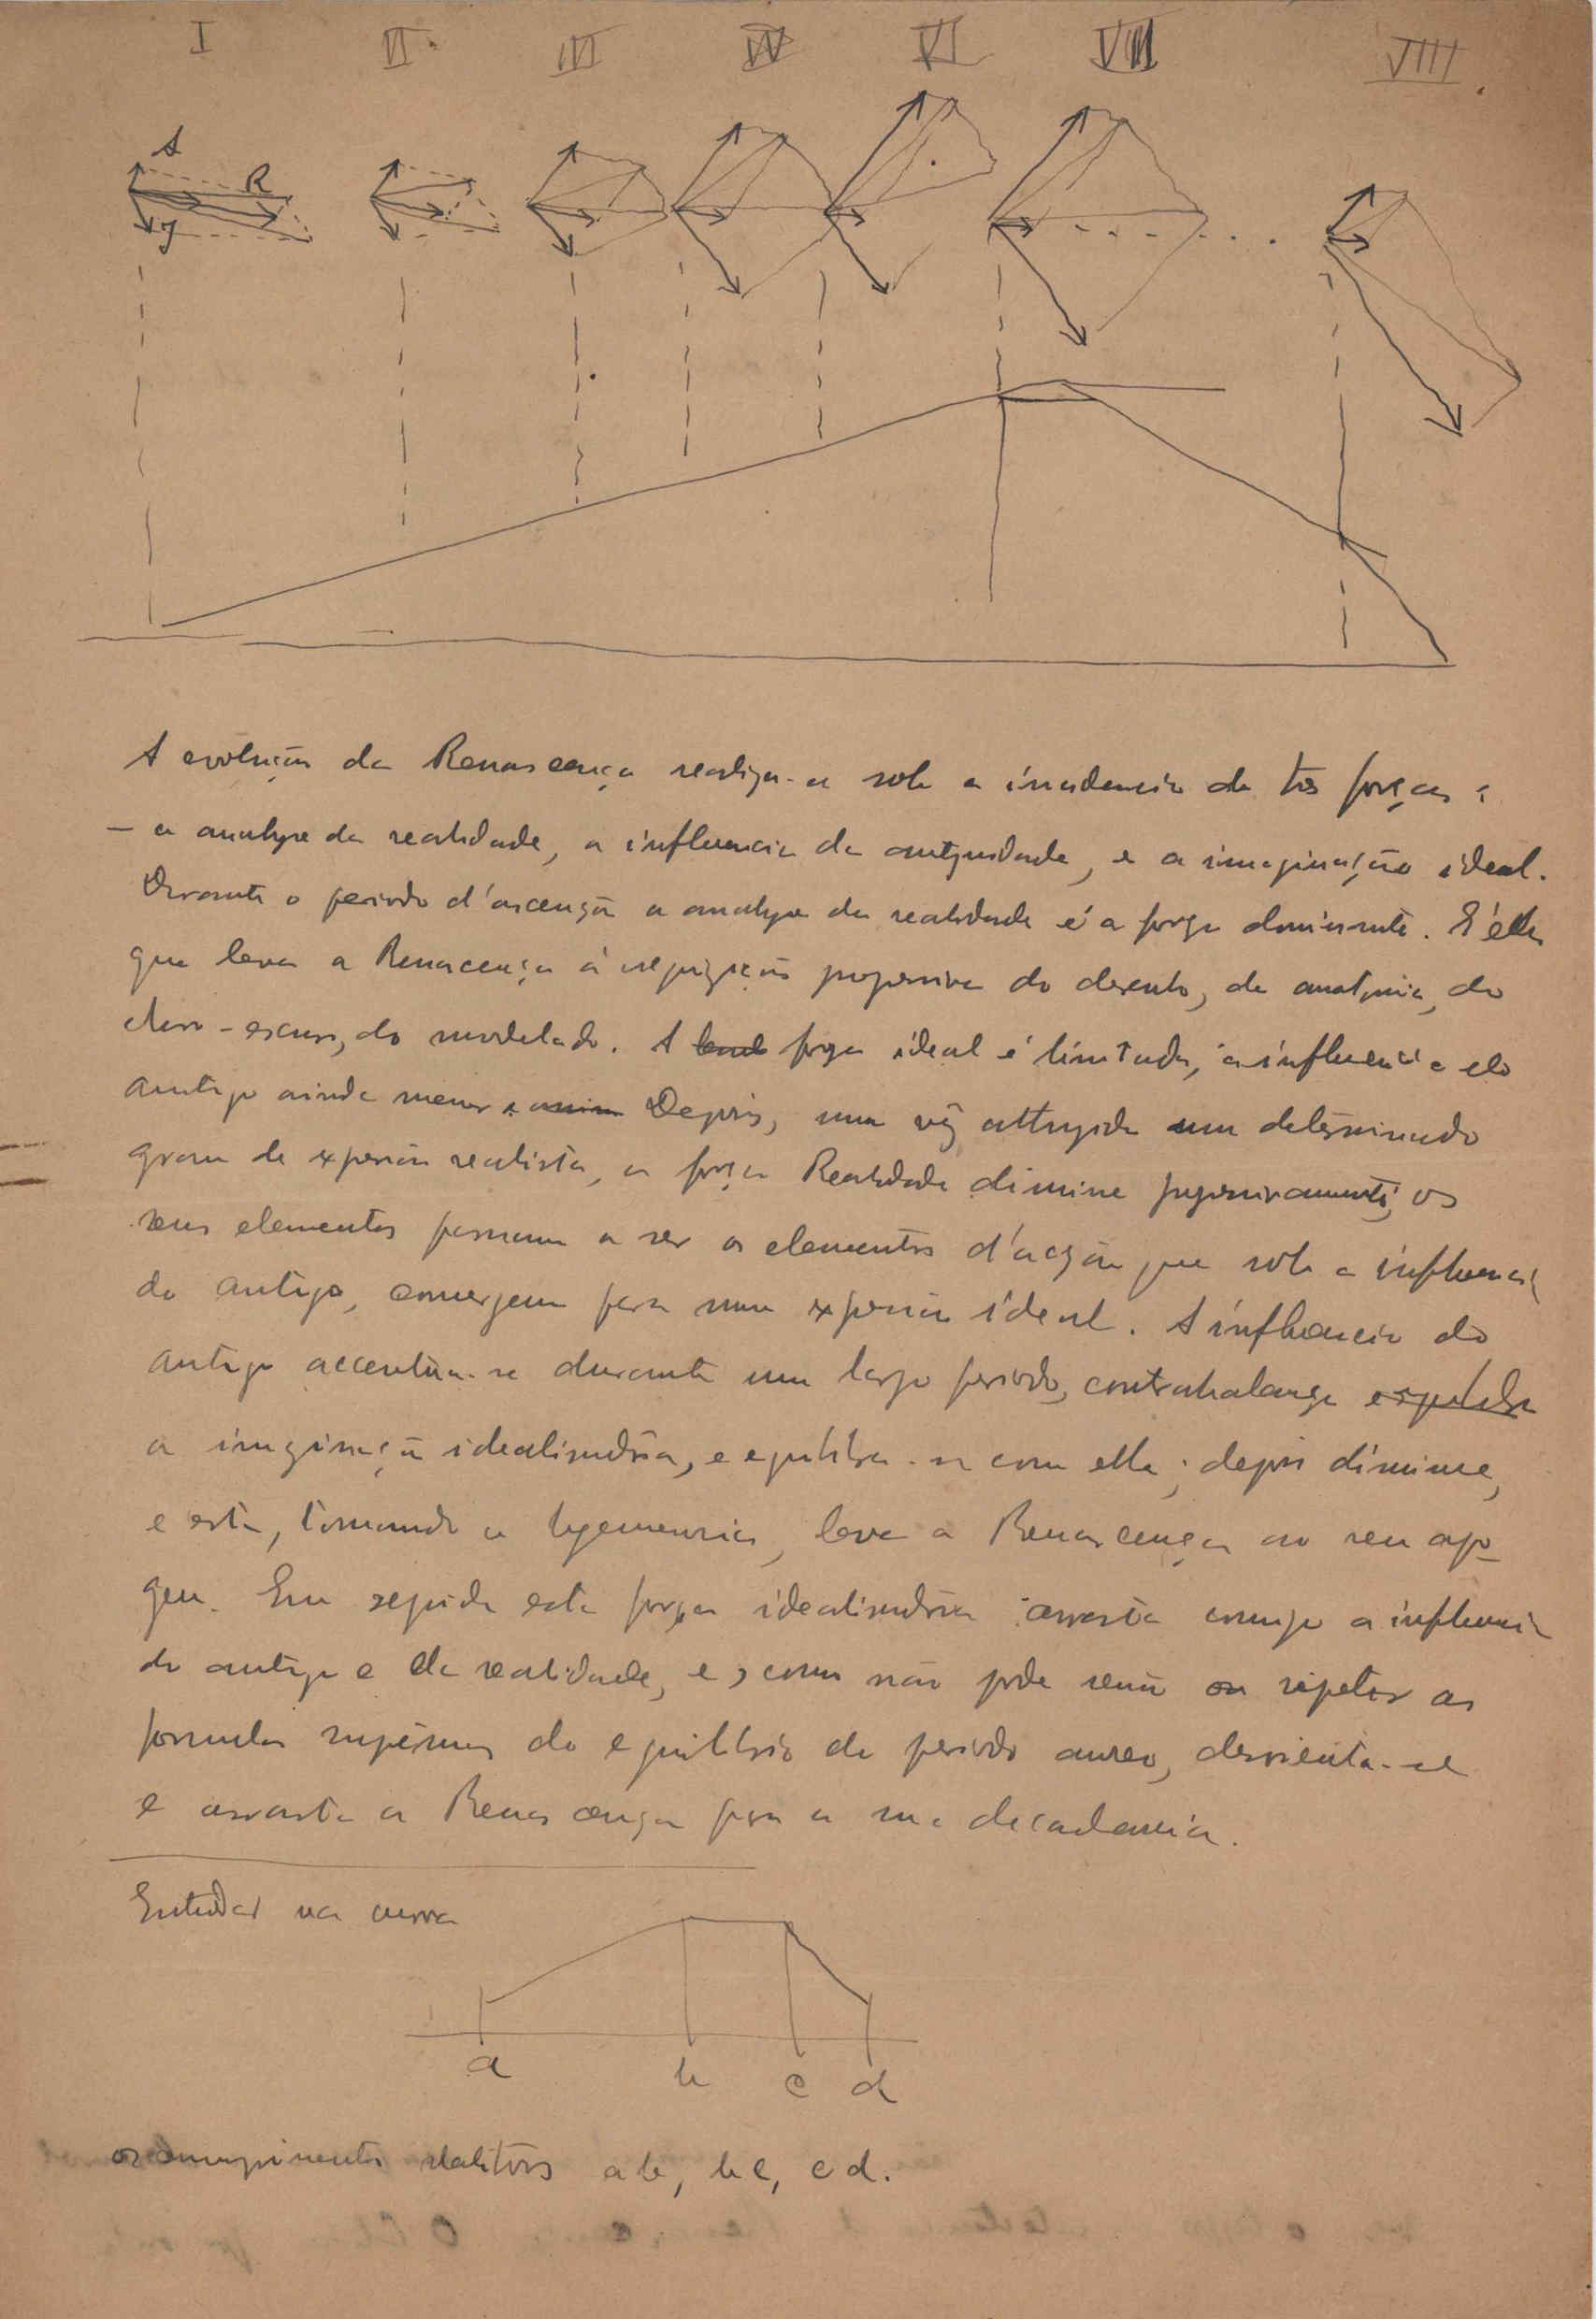 I II III IV VI VII VIII
A
R
J
A evolução da Renascença realiza-se sob a incidencia de tres forças:
— a analyse da realidade, a influencia da antiguidade, e a imaginação ideal.
Durante o periodo d'ascenção a analyse da realidade é a força dominante. E' ella
que leva a Renascença á acquisição progressiva do desenho, da anatomia, do
claro-escuro, do modelado. A força ideal é limitada, a influencia do
antigo ainda menor. Depois, uma vez attingido um determinado
grau de expressão realista, a força Realidade diminue progressivamente, os
seus elementos passam a ser os elementos d'acção que sob a influencia
do antigo, convergem para uma expressão ideal. A influencia do
antigo accentua-se durante um largo periodo, contrabalança
a imaginação idealisadora, e equilibra-se com ella; depois diminue,
e esta, tomando a hegemonia, leva a Renascença ao seu apo-
geu. Em seguida esta força idealisadora arrasta comsigo a influencia
do antigo e da realidade, e, como não pode senão repetir as
formulas supremas do equilibrio do periodo aureo, desorienta-se
e arrasta a Renascença para a sua decadencia.
Estudar na curva
a b c d
os comprimentos relativos ab, bc, cd.